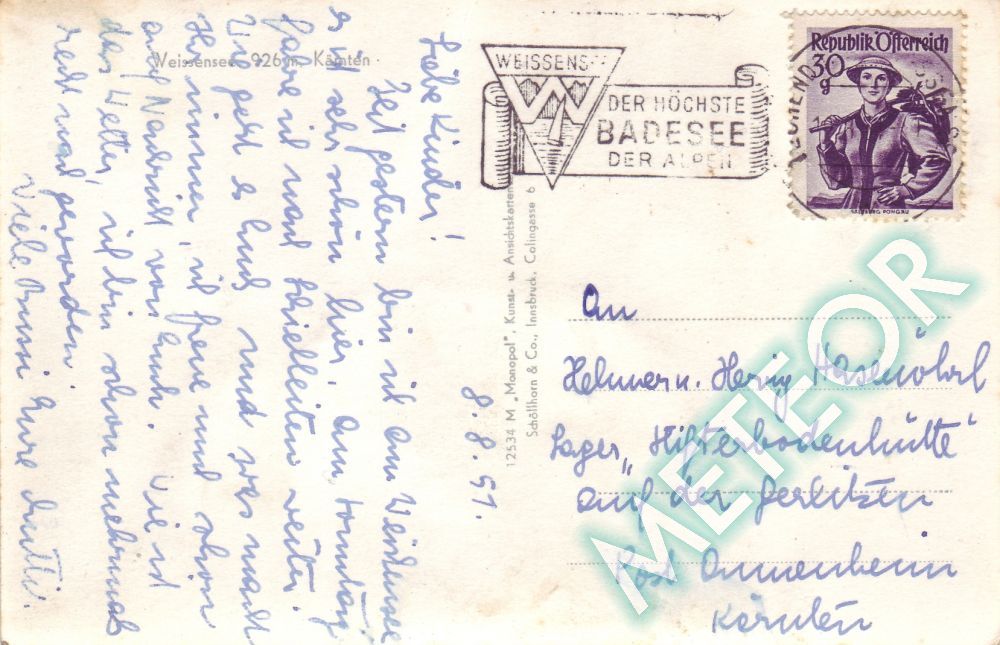 Weissensee, 926 m, Kärnten
8.8.51.
Liebe Kinder!
Seit gestern bin ich am Weissensee
es ist sehr schön hier, am Sonntag
fahre ich nach weiter.
Wie geht es Euch und was macht
Ihr immer, ich freue mich schon
auf Nachricht von Euch. Wie ist
das Wetter, ich bin schon mehrmals
recht nass geworden.
Viele Bussi Eure Mutti.
12534 M „Monopol", Kunst- u. Ansichtskarten
Schöllhorn & Co., Innsbruck, Colingasse 6
WEISSENSEE
DER HÖCHSTE
BADESEE
DER ALPEN
Republik Österreich
30
g
SALZBURG PONGAU
An
Helmer u. Herwig Hasenöhrl
Lager „Hifterbodenhütte"
auf der Gerlitzen
Post Annenheim
Kärnten
METEOR